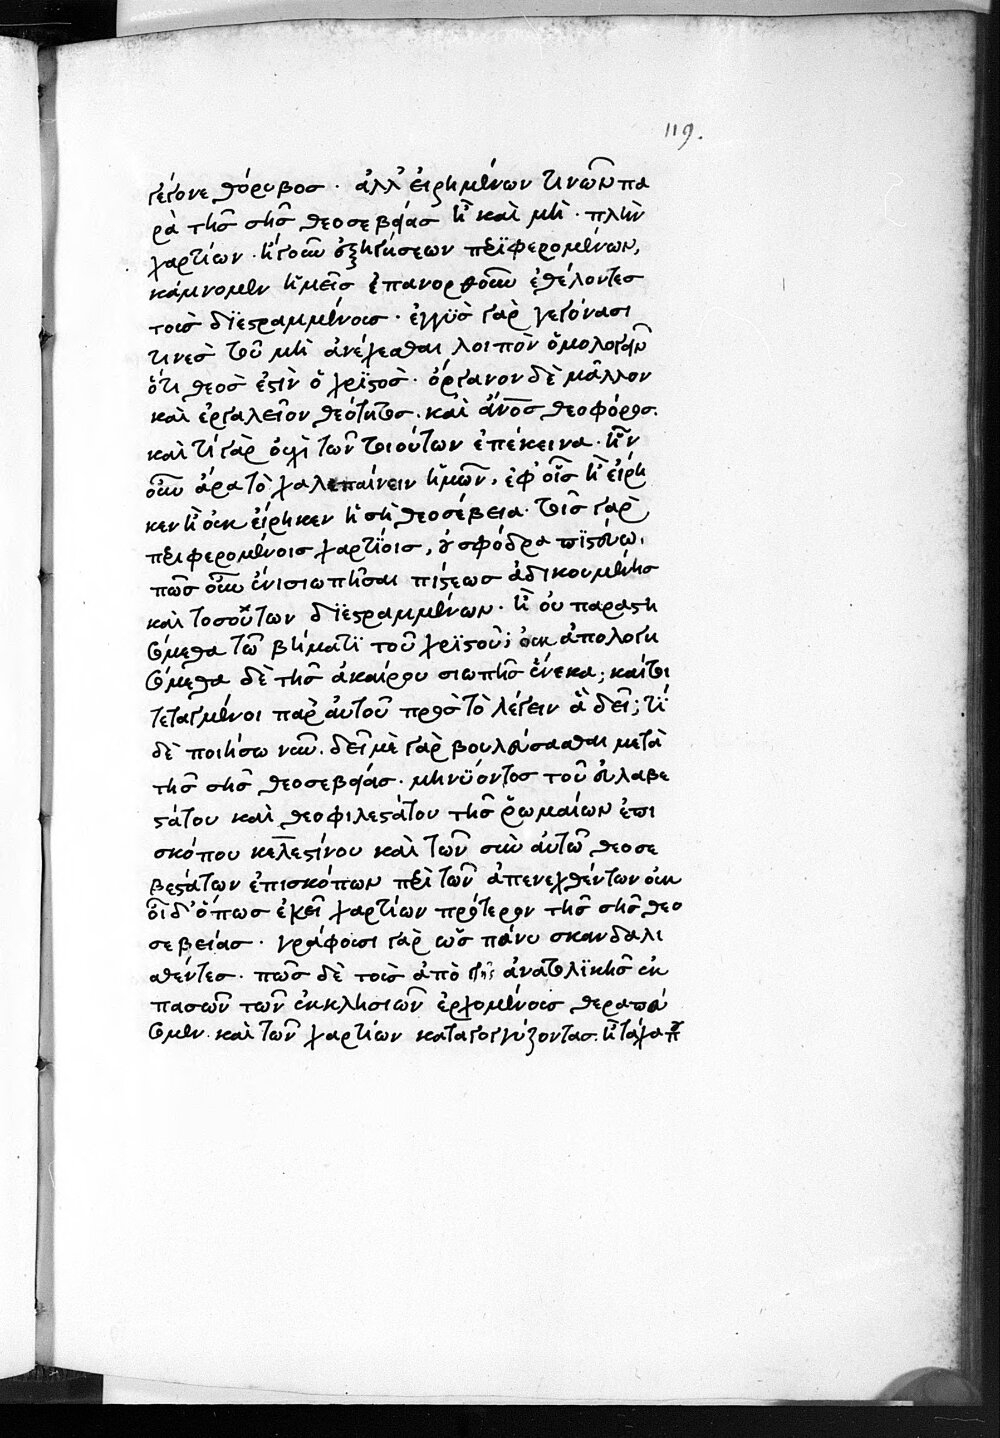 119.
γέγονε θόρυβος · ἀλλ' εἰρημένων τινῶν πα
ρὰ τῆς σῆς θεοσεβείας ἢ καὶ μὴ · πλὴν
χαρτίων · ἤγουν ἐξηγήσεων περιφερομένων,
κάμνομεν ἡμεῖς ἐπανορθοῦν ἐθέλοντες
τοὺς διεστραμμένους · ἐγγὺς γὰρ γεγόνασί
τινες τοῦ μὴ ἀνέχεσθαι λοιπὸν ὁμολογεῖν
ὅτι θεός ἐστὶν ὁ χριστὸς · ὄργανον δὲ μᾶλλον
καὶ ἐργαλεῖον θεότητος · καὶ ἄνος θεοφόρος.
καὶ τί γὰρ οὐχὶ τῶν τοιούτων ἐπέκεινα · ἦν
οὖν ἄρα τὸ χαλεπαίνειν ἡμῶν, ἐφ' οἷς ἢ εἴρη
κεν ἢ οὐκ εἴρηκεν ἡ σὴ θεοσέβεια · τοῖς γὰρ
περιφερομένοις χαρτίοις, οὐ σφόδρα πιστεύω.
πῶς οὖν ἔνι σιωπῆσαι πίστεως ἀδικουμένης
καὶ τοσούτων διεστραμμένων · ἢ οὐ παραστη
σόμεθα τῶ βήματι τοῦ χριστοῦ; οὐκ ἀπολογη
σόμεθα δὲ τῆς ἀκαίρου σιωπῆς ἕνεκα; καίτοι
τεταγμένοι παρ' αὐτοῦ πρὸς τὸ λέγειν ἃ δεῖ; τί
δὲ ποιήσω νῦν · δεῖ μὲ γὰρ βουλεύσασθαι μετὰ
τῆς σῆς θεοσεβείας · μηνύοντος τοῦ εὐλαβε
στάτου καὶ θεοφιλεστάτου τῆς ῥωμαίων ἐπι
σκόπου κελεστίνου καὶ τῶν σὺν αὐτῶ θεοσε
βεστάτων ἐπισκόπων περὶ τῶν ἀπενεχθέντων οὐκ
οἶδ' ὅπως ἐκεῖ χαρτίων πρότερον τῆς σῆς θεο
σεβείας · γράφουσι γὰρ ὡς πάνυ σκανδαλι
σθέντες · πῶς δὲ τοὺς ἀπὸ τῆς ἀνατολικῆς ἐκ
πασῶν τῶν ἐκκλησιῶν ἐρχομένους θεραπεύ
σομεν · καὶ τῶν χαρτίων καταγογγύζοντας · ἢ τάχα π